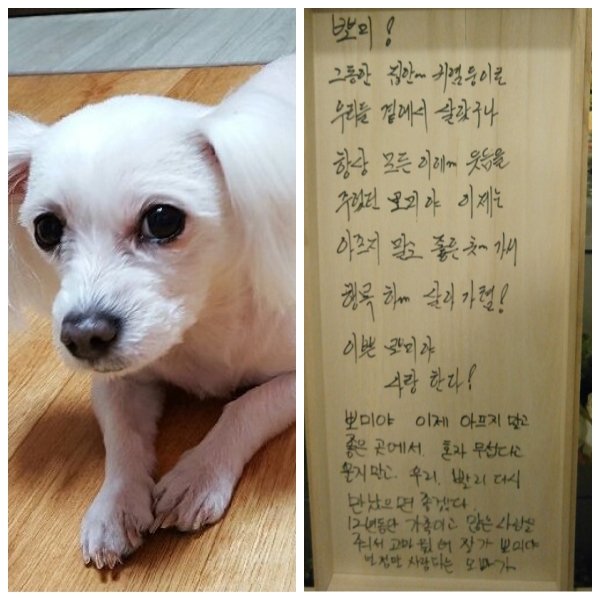 뽀미!
그동안 집안에 귀염둥이로
우리들 곁에서 살았구나
항상 모든 이에게 웃음을
주었던 뽀미야 이제는
아프지 말고 좋은 곳에 가서
행복하게 살기 바램!
이쁜 뽀미야
사랑 한다!
뽀미야 이제 아프지 말고
좋은 곳에서. 혼자 무섭다고
울지말고. 우리. 빨리 다시
만났으면 좋겠다.
12년동안 가족이고 많은 사랑을
주어서 고마웠어 잘가 뽀미야
사랑하는 오빠가